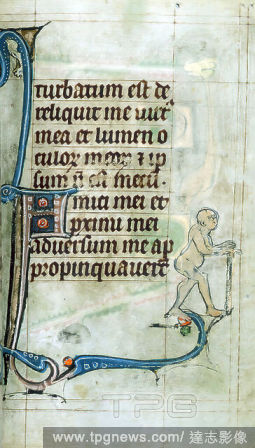 turbatum est de
reliquit me uirt
mea et lumen o
culor meor & ip
sum n̄ est mecū.
Amici mei et
pximi mei
aduersum me ap
propinquauert
TPG
www.tpgnews.com/達志影像